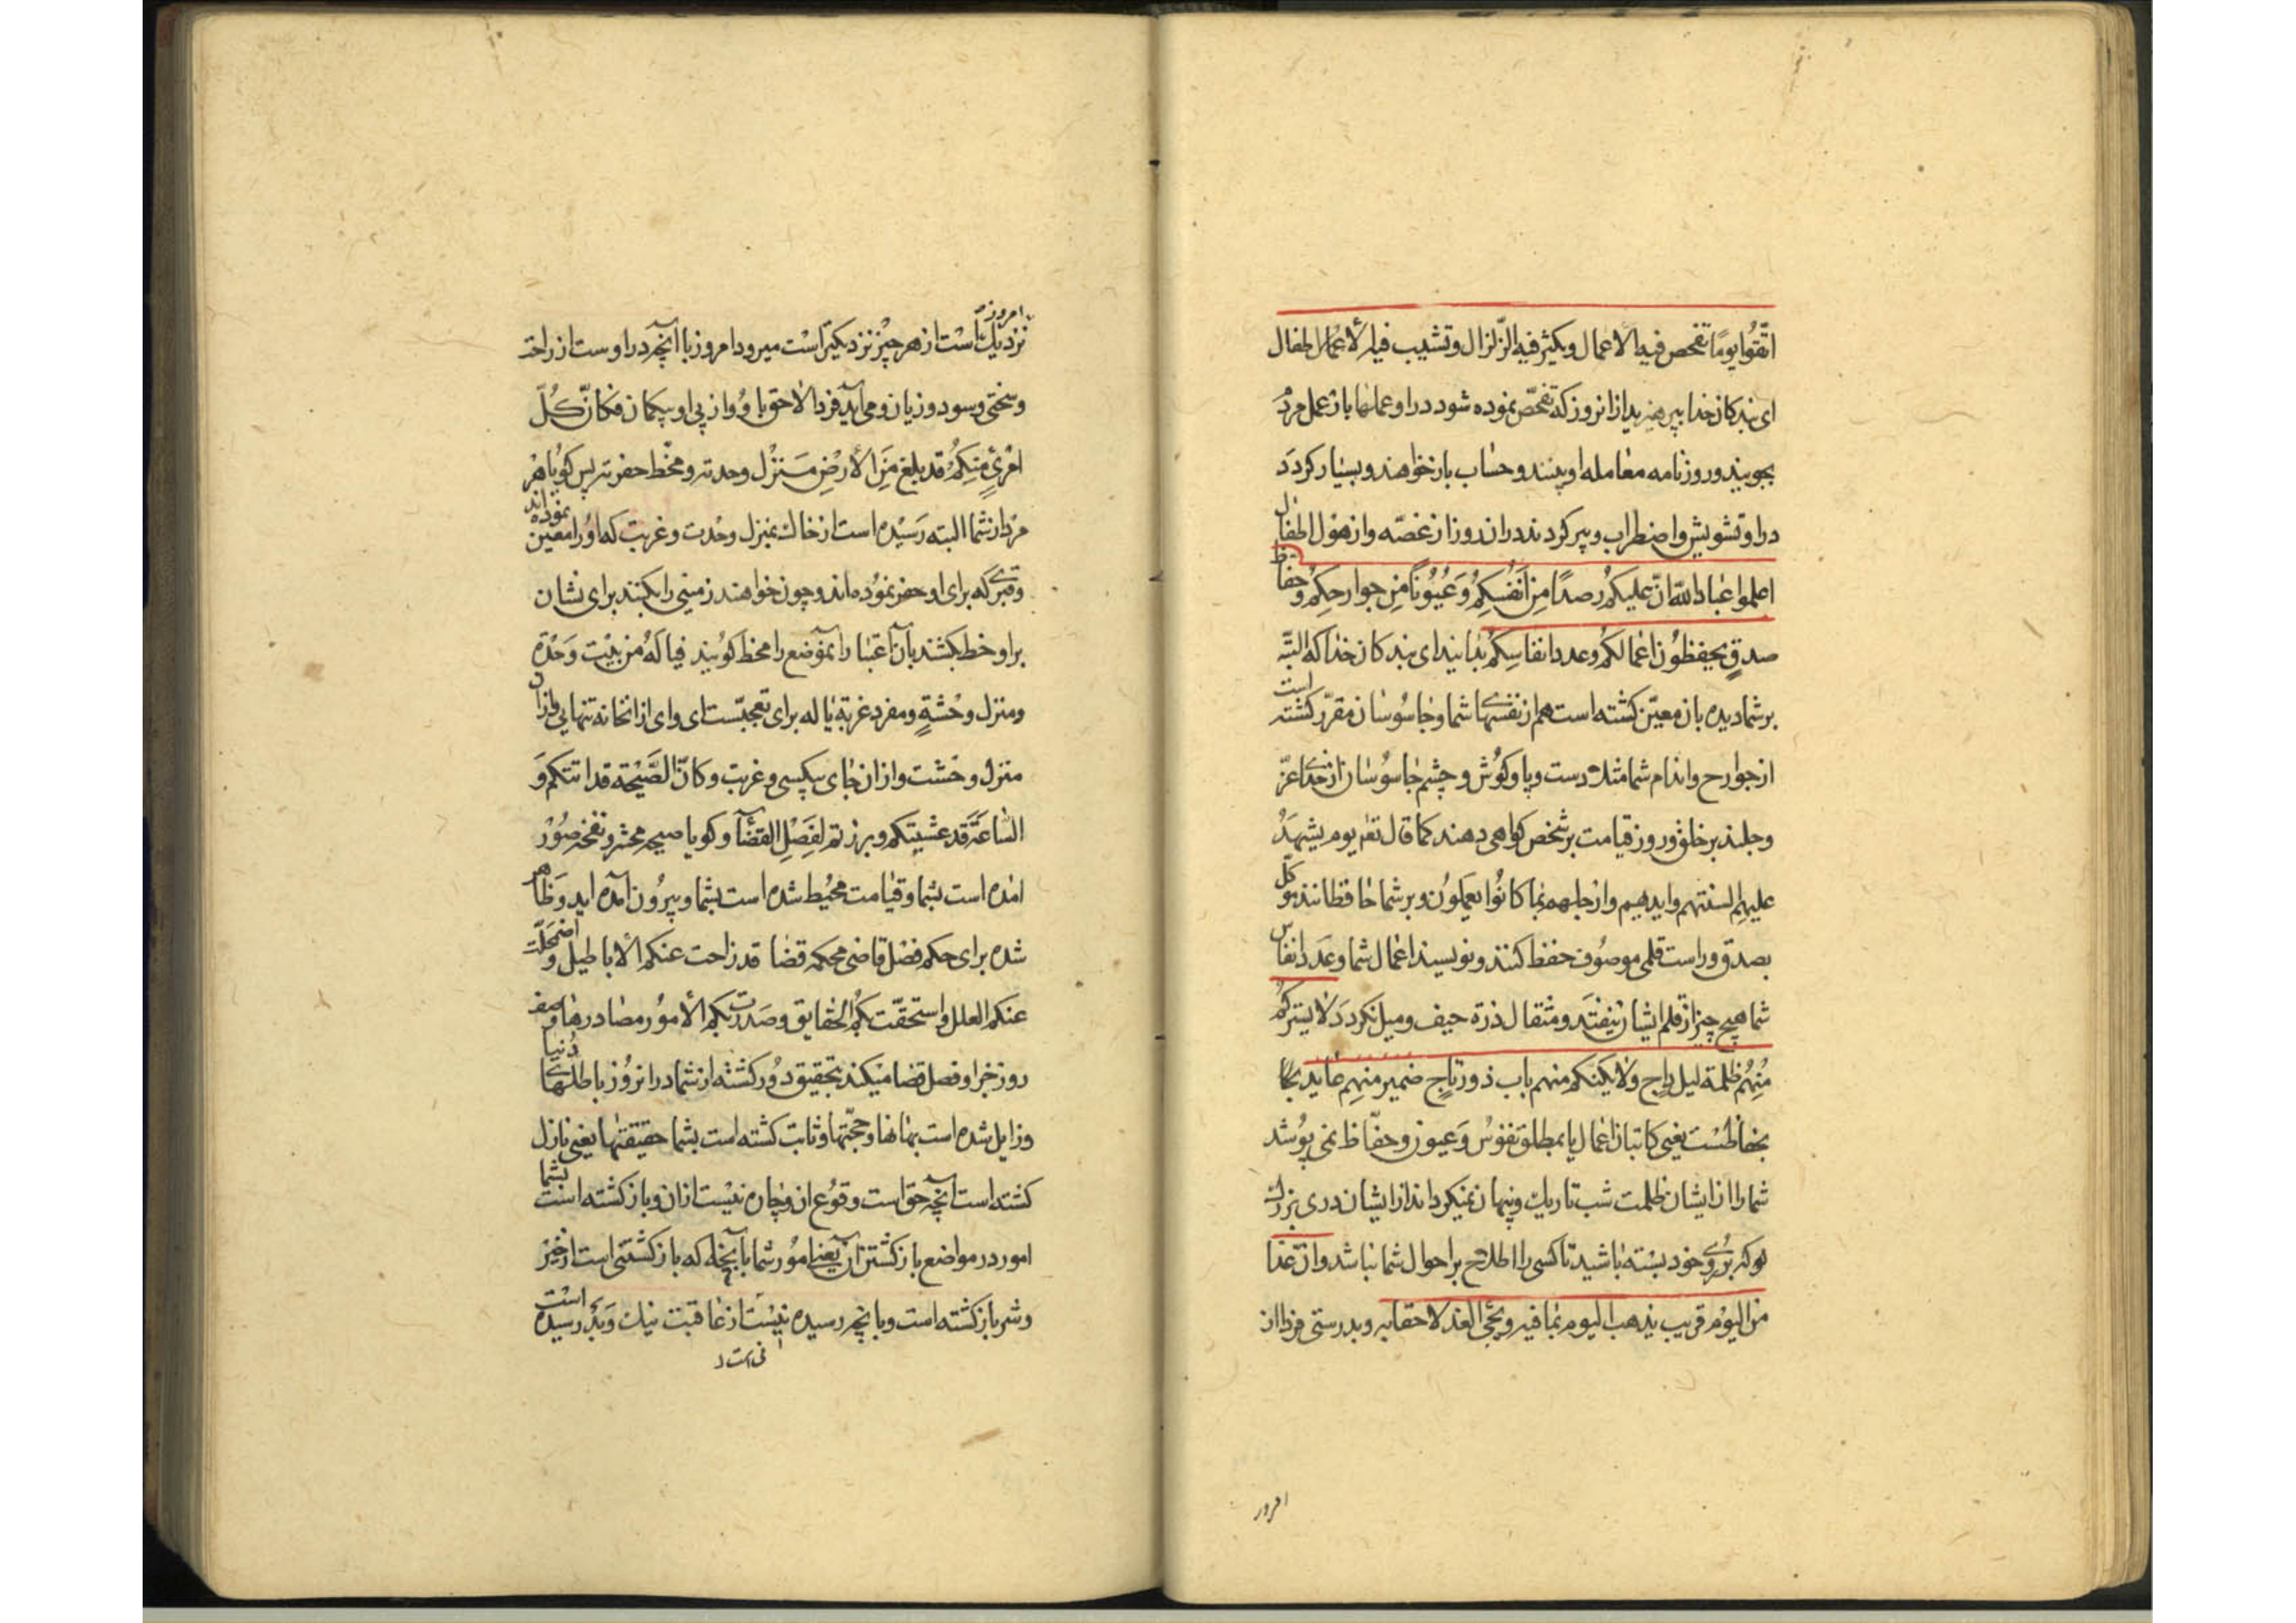 اتّقوا یومًا تفحص فیه الاعمال و یکثر فیه الزّلزال و تشیب فیه الاطفال
ای بندکان خدا بپرهیزید ازانروز که تفحّص نموده شود دراو عملها باز عمل مرد
بجویند و روزنامه معامله او بینند و حساب باز خواهند و بسیار کردد
دراو تشویش و اضطراب و پیر کردند دران روز از غصّه و از هول اطفال
اعلموا عباد الله انّ علیکم رصدًا مِن اَنفُسِکم وَ عُیُونًا مِن جوارحکم و حفّاظ
صدقٍ یحفظون اعمالکم و عدد انفاسِکم بدانید ای بندکان خدا که البتّه
بر شما دیده بان معیّن کشته است هم از نفسهای شما و جاسوسان مقرّر کشته است
از جوارح و اندام شما مثل دست و پا و کوش و چشم جاسوسان از خدای عزّ
و جلند بر خلق و روز قیامت بر شخص کواهی دهند کما قال تعم یوم یشهدُ
علیهم السنتهم و ایدیهم و ارجلهم بما کانُوا یعملُون و بر شما حافظانند موکّل
بصدق و راست قلمی موصوف حفظ کنند و نویسند اعمال شما و عدد انفاس
شما هیچ چیز از قلم ایشان نیفتد و مثقال ذرة حیف و میل نکردد لا یسترکم
مِنهُم ظلمة لیل داجٍ و لا یکنکم منهم باب ذو رتاجٍ ضمیر منهم عاید
بحفّاظست یعنی کاتبان اعمال یا بمطلق نفوس و عیون و حفّاظ نمی پوشد
شما را از ایشان ظلمت شب تاریک و پنهان نمیکرداند از ایشان دری بزرک
که بر روی خود بسته باشید تا کسی را اطلاع بر احوال شما نباشد و انّ غدًا
من الیوم قریب یذهب الیوم بما فیه و یجئ الغد لاحقا به و بدرستی فردا از
امروز
امروز نزدیک است از هر چیز نزدیکتر است میرود امروز با انچه دراوست از راحت
و سختی و سود و زیان و می آید فردا لاحق باو و از پی او بیکمان فکانّ کُلّ
امْرئٍ مِنکم قد بلغ مِن الارْضِ منزل وحدته و محطّ حفرته پس کویا هر
مرد از شما البته رسیده است از خاک بمنزل وحدت و غربت که او را معین نموده اند
و قبری که برای او حفر نموده اند و چون خواهند زمینی را بکنند برای نشان
براو خط کشند بان اعتبار آنموضع را محط کویند فیا لهُ مِن بیْت وَحْدةٍ
و منزل وحْشةٍ و مفرد غربةٍ یا له برای تعجبّست ای وای ازانخانه تنهایی و ازان
منزل وحشت و ازان جای بیکسی و غربت و کانّ الصَّیْحة قد اتتکم و
السّاعة قد غشیتکم و برزتم لفصْلِ القضآء و کویا صیحه محشر و نفخه صُوْر
امده است بشما و قیامت محیُط شده است بشما و بیرون امده اید و ظاهر
شده برای حکم فصل قاضی محکمه قضا قد زاحت عنکم الاباطیل و اضمحلّت
عنکم العلل و استحقّت بکم الحقایق و صَدرت بکم الامُور مصادرها
روز جزا و فصل قضا میکند بتحقیق دور کشته از شما درانروز باطلهای دنیا
و زایل شده است بهانها و حجّتها و ثابت کشته است بشما حقیقتها یعنی نازل
کشته است انچه حق است وقوُع ان و چاره نیست ازان و باز کشته است بشما
امور در مواضع باز کشتن ان یعنی امُور شما بآنچه که باز کشتنی است از خیر
و شر باز کشته است و بانچه رسیده نیست از عاقبت نیک و بد رسیده است